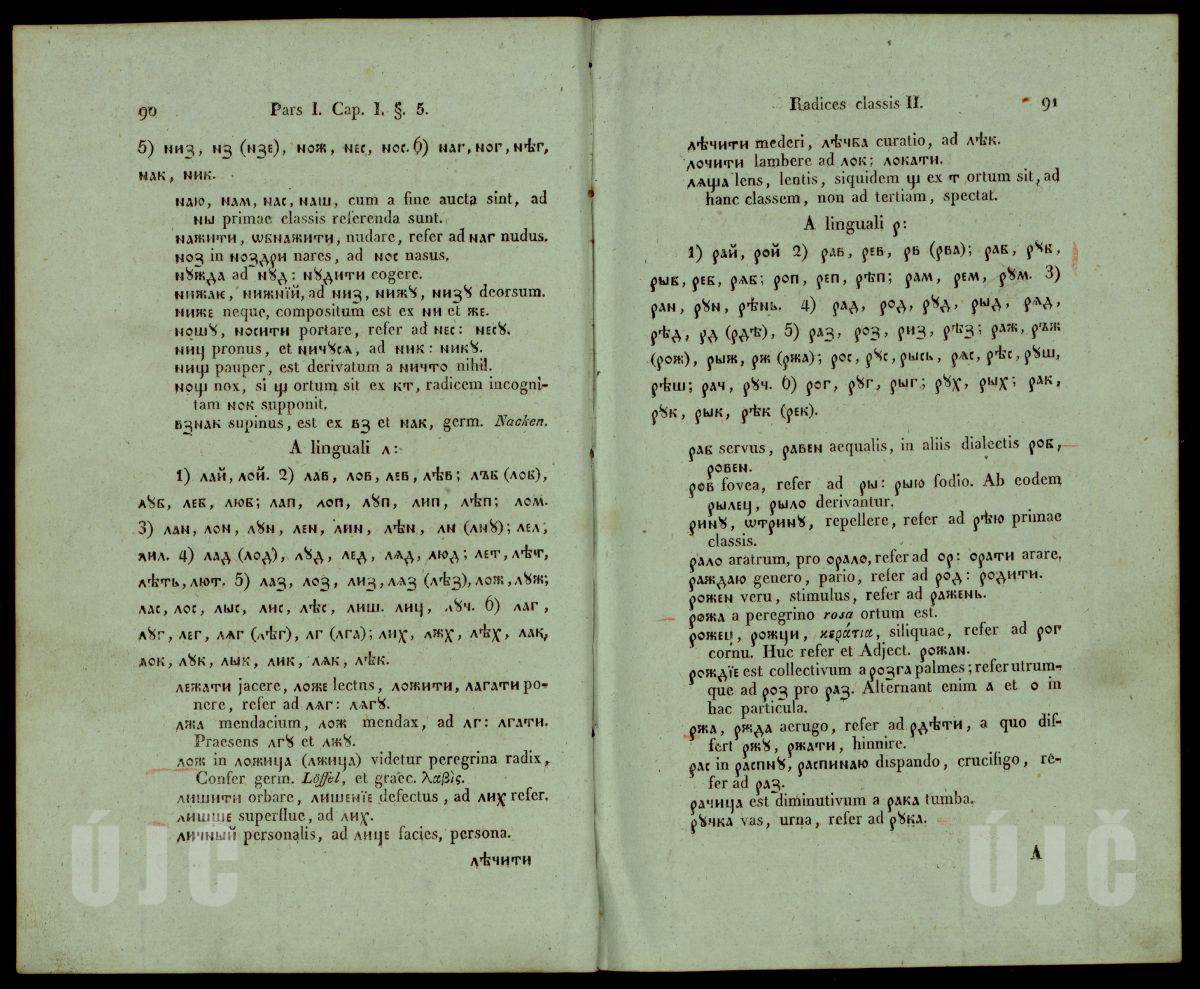 90 Pars I. Cap. I. §. 5.
5) низ, нз (нзе), нож, нес, нос. 6) наг, ног, нѣг,
нак, ник.
наю, нам, нас, наш, cum a fine aucta sint, ad
ны primae classis referenda sunt.
нажити, ѡбнажити, nudare, refer ad наг nudus.
ноз in ноздри nares, ad нос nasus.
нꙋжда ad нꙋд: нꙋдити cogere.
нижаю, нижнїй, ad низ, нижꙋ, низꙋ deorsum.
ниже neque, compositum est ex ни et же.
ношꙋ, носити portare, refer ad нес: несꙋ.
ниц pronus, et ничꙋсѧ, ad ник: никꙋ.
нищ pauper, est derivatum a ничто nihil.
нощ nox, si щ ortum sit ex кт, radicem incogni-
tam нок supponit.
взнак supinus, est ex вз et нак, germ. Nacken.
A linguali л:
1) лай, лой. 2) лав, лов, лев, лѣв; лъб (лоб),
лꙋб, леб, люб; лап, лоп, лꙋп, лип, лѣп; лом.
3) лан, лон, лꙋн, лен, лин, лѣн, лн (лнꙋ); лел,
лил. 4) лад (лод), лꙋд, лед, лѧд, люд; лет, лѣт,
лѣть, лют. 5) лаз, лоз, лиз, лѧз (лѣз), лож, лꙋж;
лас, лос, лыс, лис, лѣс, лиш. лиц, лꙋч. 6) лаг,
лꙋг, лег, лѧг (лѣг), лг (лга); лих, лжх, лѣх, лак,
лок, лꙋк, лык, лик, лѧк, лѣк.
лежати jacere, ложе lectus, ложити, лагати po-
nere, refer ad лѧг: лѧгꙋ.
лжа mendacium, лож mendax, ad лг: лгати.
Praesens лгꙋ et лжꙋ.
лож in ложица (лжица) videtur peregrina radix,
Confer germ. Löffel, et graec. λαβίς.
лишити orbare, лишенїе defectus, ad лих refer.
лишше superflue, ad лих.
личный personalis, ad лице facies, persona.
лѣчити
Radices classis II. 91
лѣчити mederi, лѣчба curatio, ad лѣк.
лочити lambere ad лок; локати.
лѧща lens, lentis, siquidem щ ex т ortum sit, ad
hanc classem, non ad tertiam, spectat.
A linguali р:
1) рай, рой 2) рав, рев, рв (рва); раб, рꙋб,
рыб, реб, рѧб; роп, реп, рѣп; рам, рем, рꙋм. 3)
ран, рꙋн, рѣнь. 4) рад, род, рꙋд, рыд, рѧд,
рѣд, рд (рдѣ), 5) раз, роз, риз, рѣз; раж, ръж
(рож), рыж, рж (ржа); рос, рꙋс, рысь, рѧс, рѣс, рꙋш,
рѣш; рач, рꙋч. 6) рог, рꙋг, рыг; рꙋх, рых; рак,
рꙋк, рык, рѣк (рек).
раб servus, рабен aequalis, in aliis dialectis роб,
ровен.
ров fovea, refer ad ры: рыю fodio. Ab eodem
рылец, рыло derivantur.
ринꙋ, ѡтринꙋ, repellere, refer ad рѣю primae
classis.
рало aratrum, pro орало, refer ad ор: орати arare.
раждаю genero, pario, refer ad род: родити.
рожен veru, stimulus, refer ad ражень.
рожа a peregrino rosa ortum est.
рожец, рожци, κεράτια, siliquae, refer ad рог
cornu. Huc refer et Adject. рожан.
рождїе est collectivum a розга palmes; refer utrum-
que ad роз pro раз. Alternant enim а et о in
hac particula.
ржа, ржда aerugo, refer ad рдѣти, a quo dif-
fert ржꙋ, ржати, hinnire.
рас in распнꙋ, распинаю dispando, crucifigo, re-
fer ad раз.
рачица est diminutivum a рака tumba.
рꙋчка vas, urna, refer ad рꙋка.
A
ÚJČ
ÚJČ